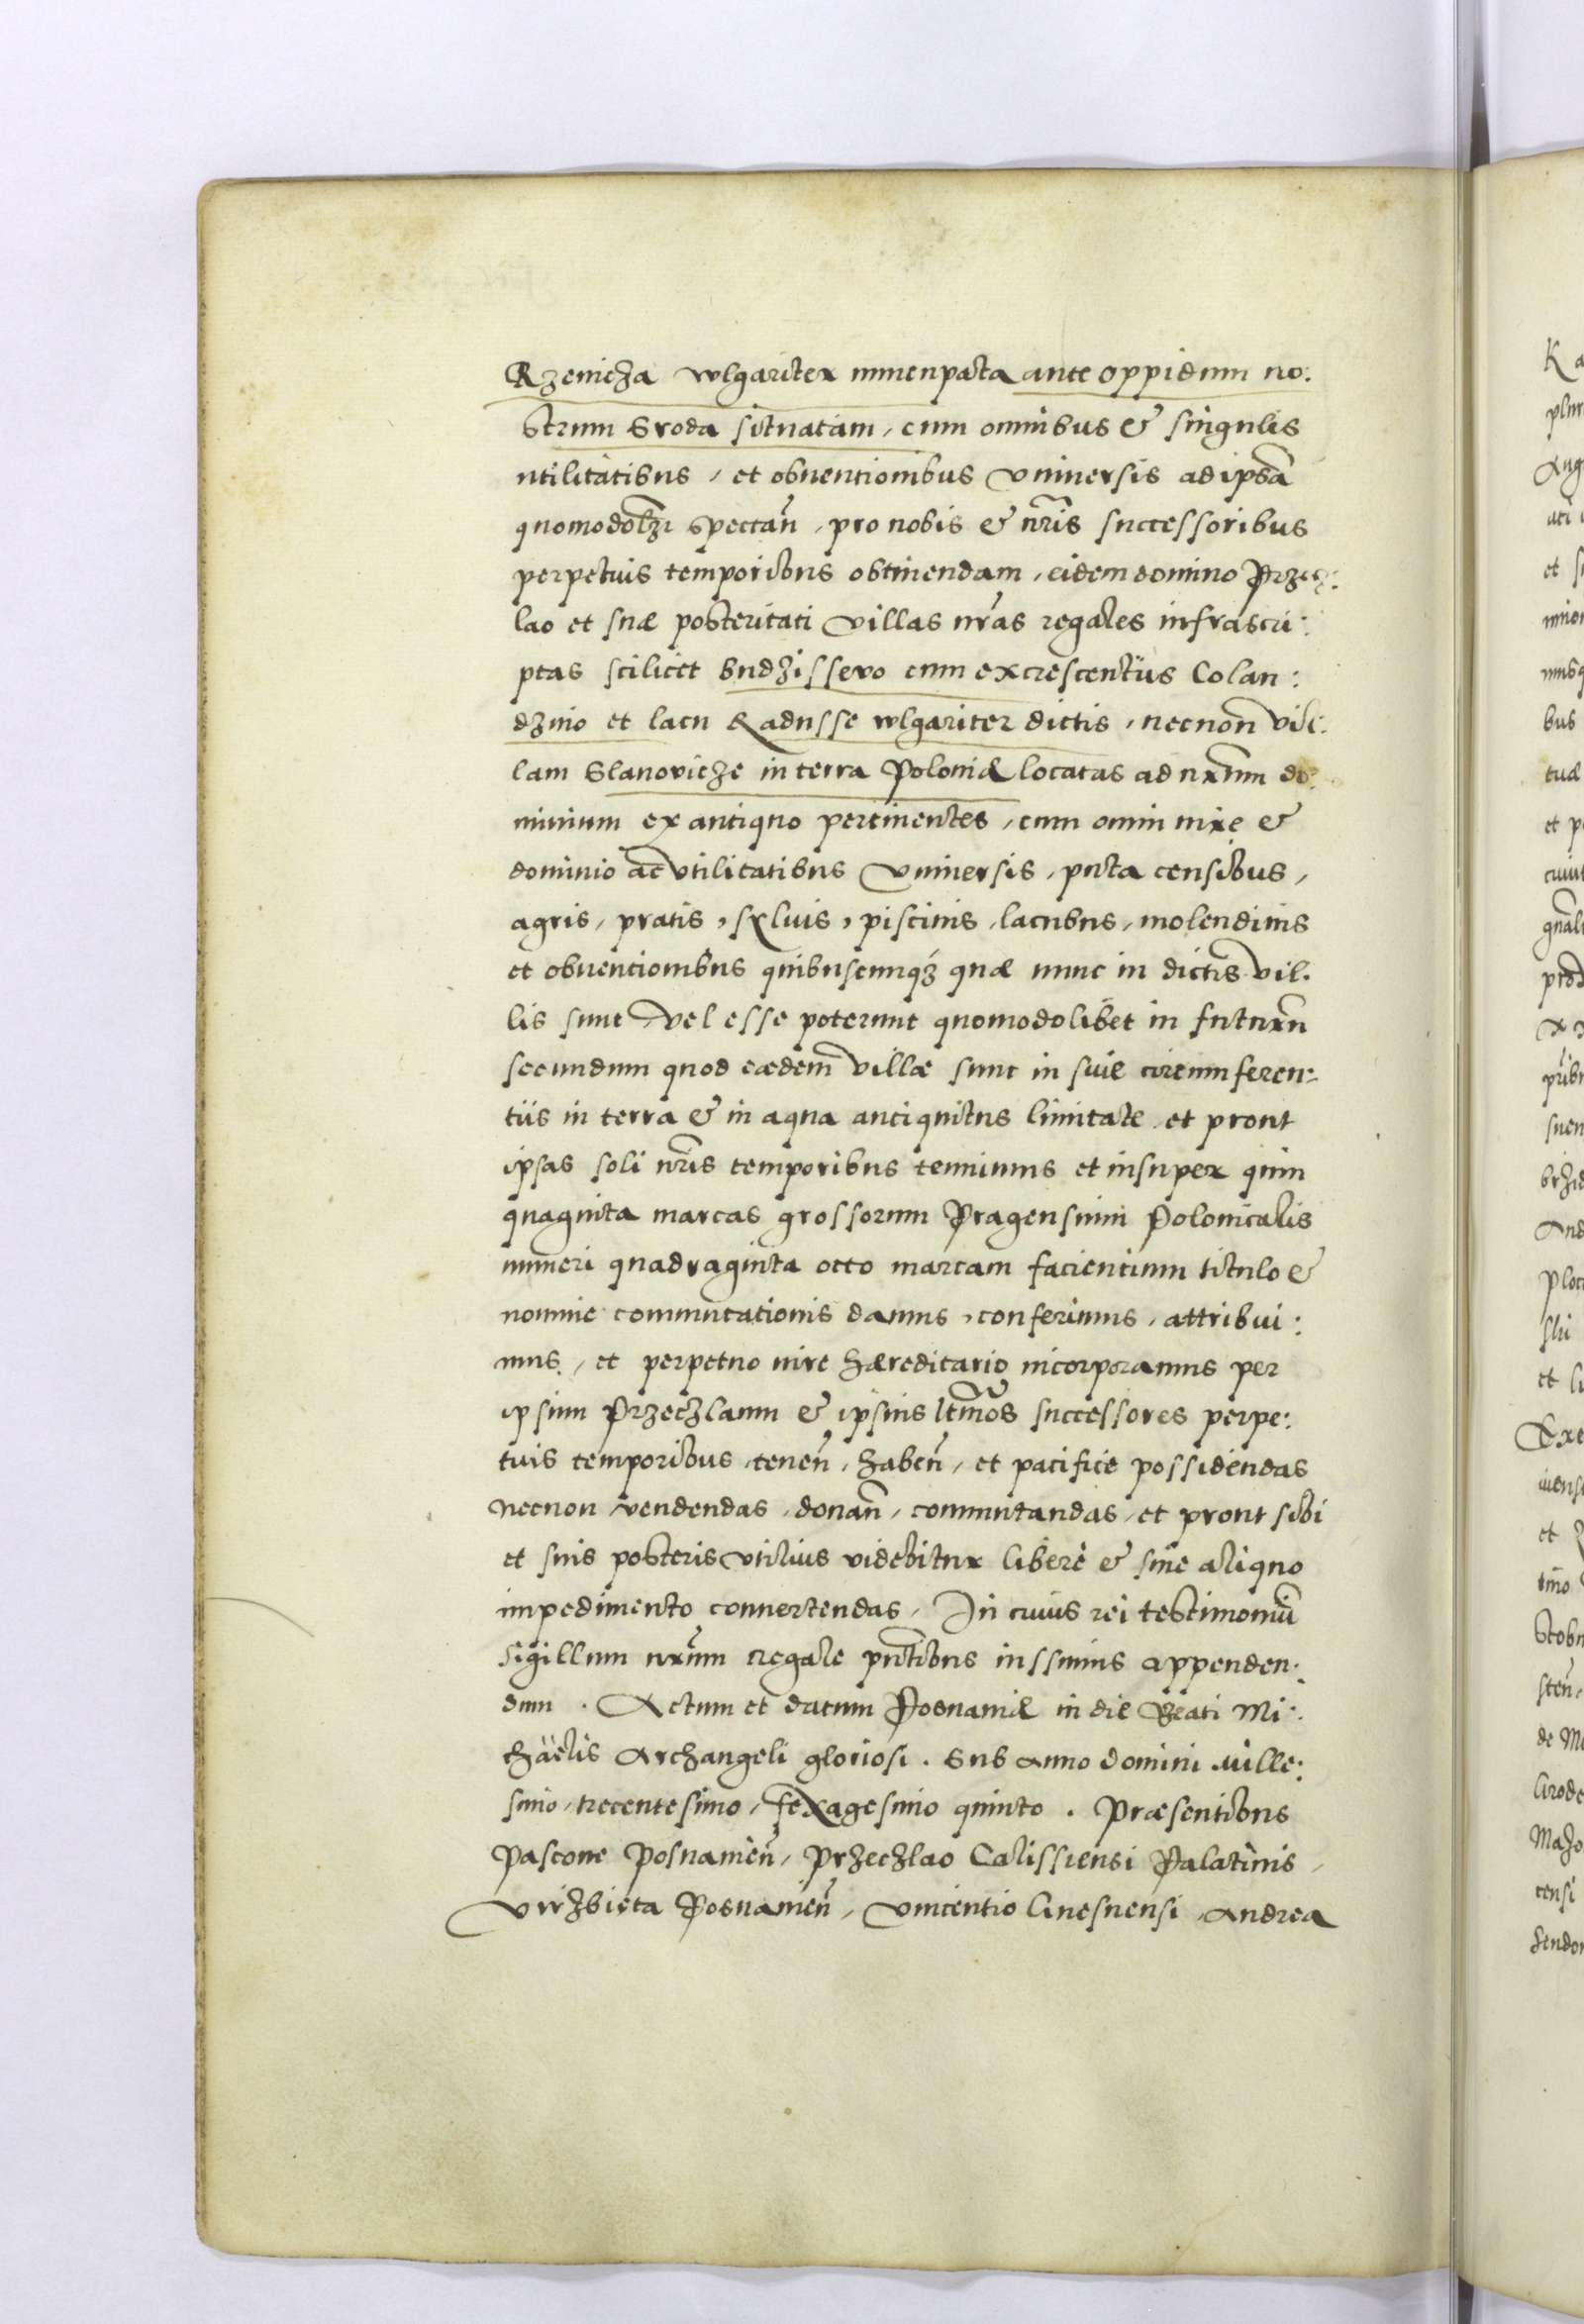 Rzenicza wlgariter nunenpata ante oppidum no:
strum Sroda situatam, cum omnibus & singulis
utilitatibus, et obuentionibus Vniuersis ad ipsã
quomodolꝫ spectañ, pro nobis & nr̃is successoribus
perpetuis temporibus obtinendam, eidem domino Przecz:
lao et suæ posteritati Villas nr̃as regales infrascri:
ptas scilicet Budzissewo cum excrescentiis Colan:
dzino et lacu Radusse wlgariter dictis, necnon Vil:
lam Slanovicze in terra Poloniæ locatas ad nr̃um do:
minium ex antiquo pertinentes, cum omni iure &
dominio ac Vtilitatibus Vniuersis, puta censibus,
agris, pratis, syluis, piscinis, lacubus, molendinis
et obuentionibus quibuscunqꝫ quæ nunc in dictis vil:
lis sunt vel esse poterunt quomodolibet in futurũ
secundum quod eædem Villæ sunt in suis circumferen:
tiis in terra & in aqua antiquitus limitatæ et prout
ipsas soli nr̃is temporibus tenuimus et insuper quin
quaginta marcas grossorum Pragensium Polonicalis
numeri quadraginta octo marcam facientium titulo &
nomine commutationis damus, conferimus, attribui:
mus, et perpetuo iure hæreditario incorporamus per
ipsum Przeczlaum & ipsius ltm̃os successores perpe:
tuis temporibus, teneñ, habeñ, et pacifice possidendas
necnon vendendas, donañ, commutandas, et prout sibi
et suis posteris vtilius videbitur libere & sine aliquo
impedimento conuertendas, In cuius rei testimoniũ
sigillum nr̃um regale pñtibus iussimus appenden:
dum. Actum et datum Posnaniæ in die Beati Mi:
chaëlis Archangeli gloriosi. Sub anno domini mille:
simo, trecentesimo, sexagesimo quinto. Præsentibus
Pascone Posnanieñ, Przeczlao Calissiensi Palatinis,
Virzbieta Posnanieñ, Vincentio Gnesnensi, Andrea